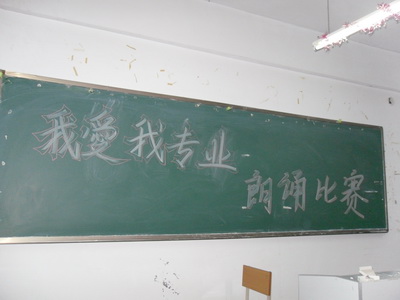 我爱我专业
朗诵比赛